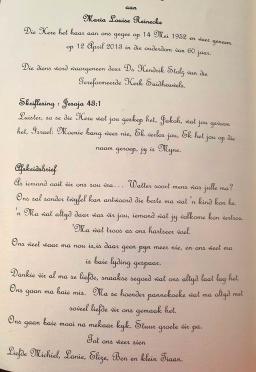 aan
Maria Louise Reinecke
Die Here het haar aan ons gegee op 14 Mei 1952 en weer geneem
op 12 April 2013 in die ouderdom van 60 jaar.
Die diens word waargeneem deur Ds Hendrik Stolz van die
Gereformeerde Kerk Suidheuwels.
Skriflesing : Jesaja 43:1
Luister, so sê die Here wat jou geskep het, Jakob, wat jou gevorm
het, Israel: Moenie bang wees nie, Ek verlos jou, Ek het jou op die
naam geroep, jy is Myne.
Afskeidsbrief
As iemand ooit vir ons sou vra... Watter soort mens was julle ma?
Ons sal sonder twyfel kan antwoord die beste ma wat 'n kind kon hê.
'n Ma wat altyd daar was vir jou, iemand wat jy volkome kon vertrou.
'n Ma wat troos as ons hartseer voel.
Ons weet waar ma nou is, is daar geen pyn meer nie, en ons weet ma
is baie lyding gespaar.
Dankie vir al ma se liefde, snaakse segoed wat ons altyd laat lag het.
Ons gaan ma baie mis. Ma se hoender pannekoeke wat ma altyd met
soveel liefde vir ons gemaak het.
Ons gaan baie mooi na mekaar kyk. Stuur groete vir pa.
Tot ons weer sien
Liefde Michiel, Lanie, Elize, Ben en klein Tiaan.